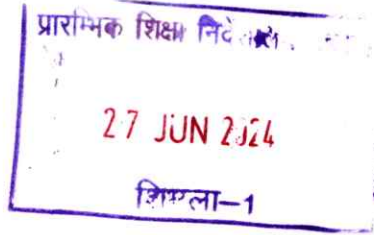 प्रारम्भिक शिक्षा
27 JUN 2024
शिमला-1